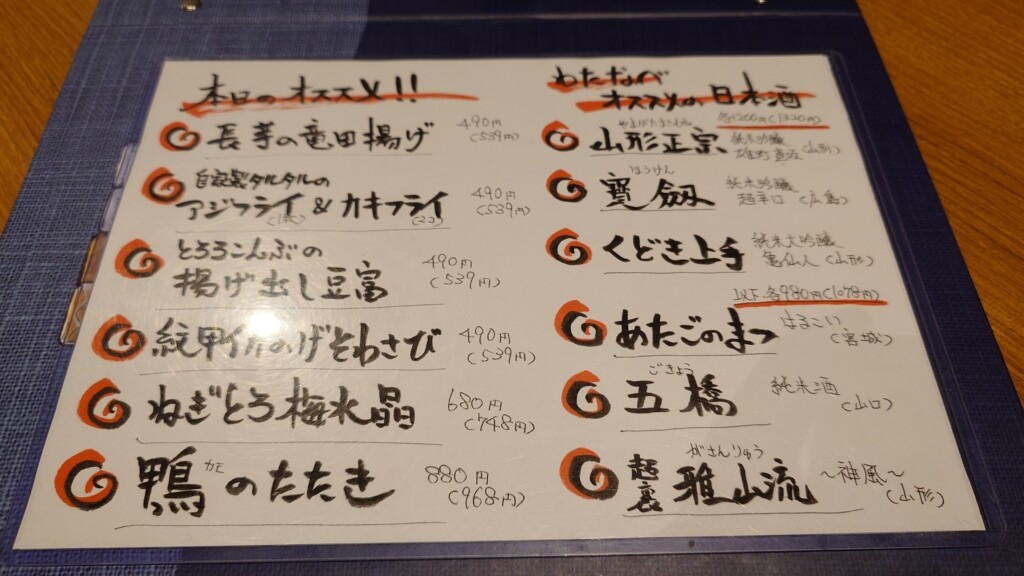 本日のオススメ!!
長芋の竜田揚げ 490円 (539円)
自家製タルタルの
アジフライ & カキフライ 490円 (539円)
(1枚) (2コ)
とろろこんぶの
揚げ出し豆富 490円 (539円)
紋甲イカのげそわさび 490円 (539円)
ねぎとろ梅水晶 680円 (748円)
鴨のたたき 880円 (968円)
カモ
わたなべ
オススメの日本酒
各1200円(1320円)
やまがたまさむね
山形正宗 純米吟醸
雄町 (山形)
ほうけん
寳剱 純米吟醸
超辛口 (広島)
くどき上手 純米大吟醸
亀仙人 (山形)
以下各980円(1078円)
あたごのまつ はるこい
(宮城)
ごきょう
五橋 純米酒
(山口)
がさんりゅう
超裏 雅山流 ～神風～
(山形)